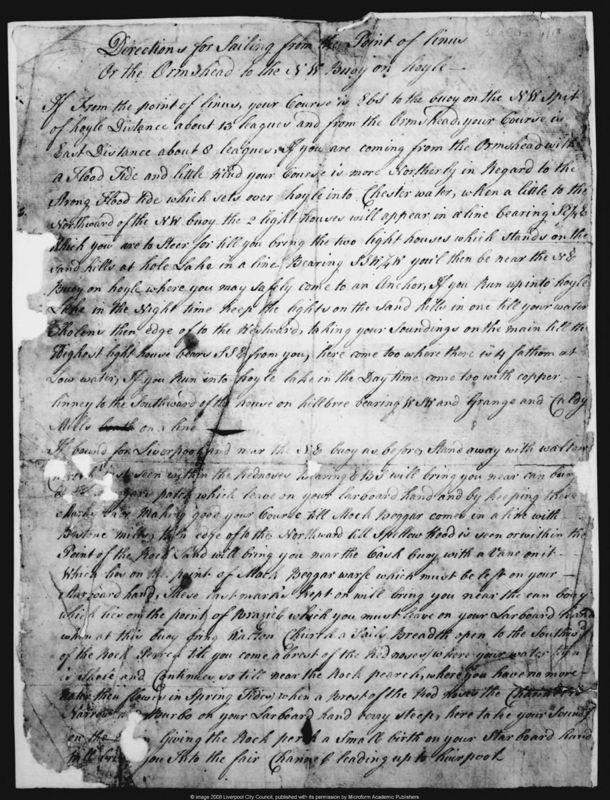 Directions for Sailing from the Point of linus
Or the Ormshead to the N W Buoy on hoyle
If From the point of linus, your Course is EbS to the buoy on the N W Spit
of hoyle Distance about 13 leagues and from the Ormshead, your Course is
East Distance about 8 leagues, If you are coming from the Ormshead with
a Flood Tide and little Wind your Course is more Northerly in Regard to the
Strong Flood tide which sets over hoyle into Chester water, when a little to the
Northward of the NW buoy the 2 light houses will appear in a line bearing
which you are to Steer for till you bring the two light houses which Stands on the
Sand hills at hole Lake in a line Bearing you'l then be near the N E
Buoy on hoyle where you may safely come to an Anchor, If you Run up into hoyle
Lake in the Night time keep the lights on the Sand hills in one till your water
Sholens then Edge of to the Westward, taking your Soundings on the main till the
Highest light house bears S S E from you, here come too where there is 4 fathom at
Low water, If you Run into hoyle lake in the Day time come too with copper
linney to the Southward of the house on hillbree bearing and Grange and Caldy
Mills on a line
If bound for Liverpool and near the N E buoy as before, Stand away with
seen within the Rednoses bearing will bring you near can buoy
patch which leave on your larboard hand and by keeping these
Marks Making good your Course till Mock Beggar comes in a line with
mill, then edge of to the Northward till Spellow Hood is seen or within the
Point of the Rock land will bring you near the Cask buoy with a Vane on it
Which lies on the point of Mock Beggar warfe which must be left on your
Starboard hand, These last marks kept on will bring you near the can buoy
which lies on the point of Brazil which you must leave on your Larboard hand
when at this buoy bring Walton Church a Sails Breadth open to the Southward
of the Rock till you come abrest of the Red noses, where your water
is Shole and Continues so till near the Rock pearch, where you have no more
water then flows in Spring Tides, when abrest of the Red noses the Channel is
Narrow Burbo on your Larboard hand being steep, here take your Sound
on the Giving the Rock perch a Small birth on your Starboard hand
you into the fair Channel leading up to liverpool
© image 2008 Liverpool City Council, published with its permission by Microform Academic Publishers